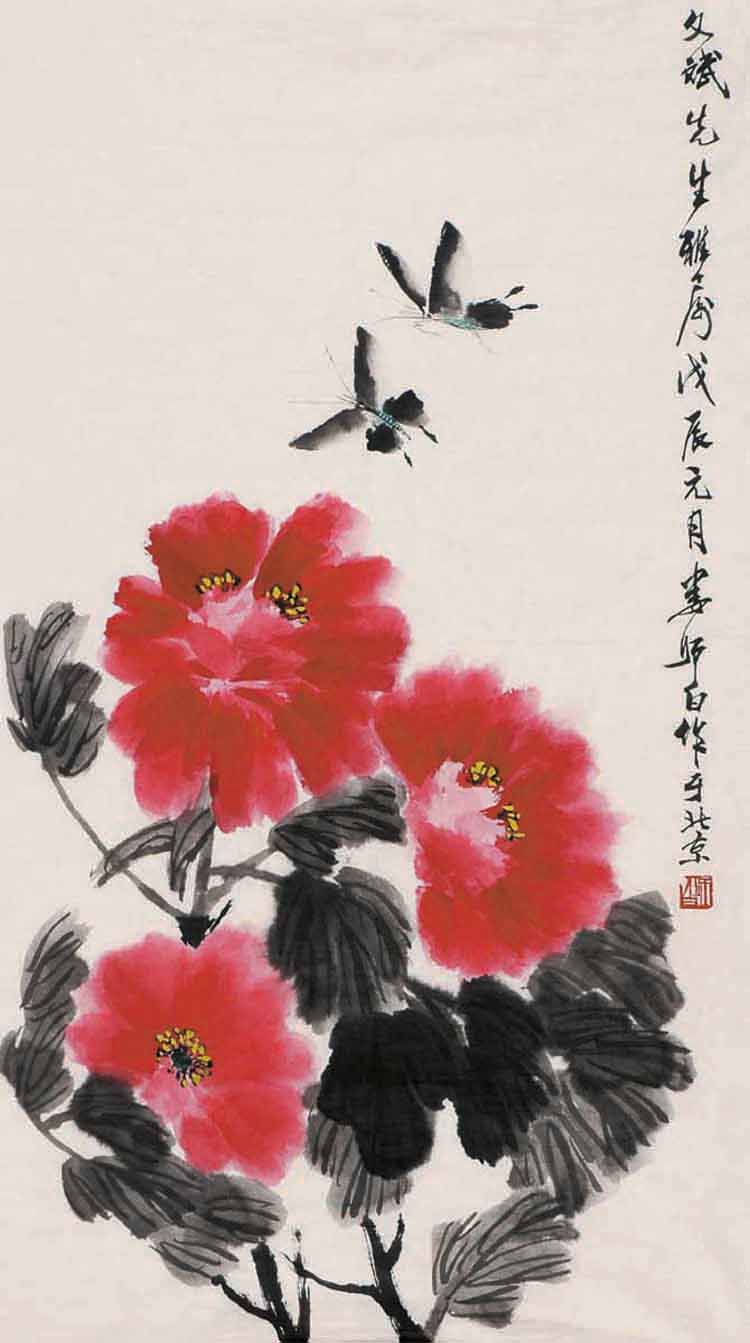 文斌先生雅属戊辰元月娄师白作于北京